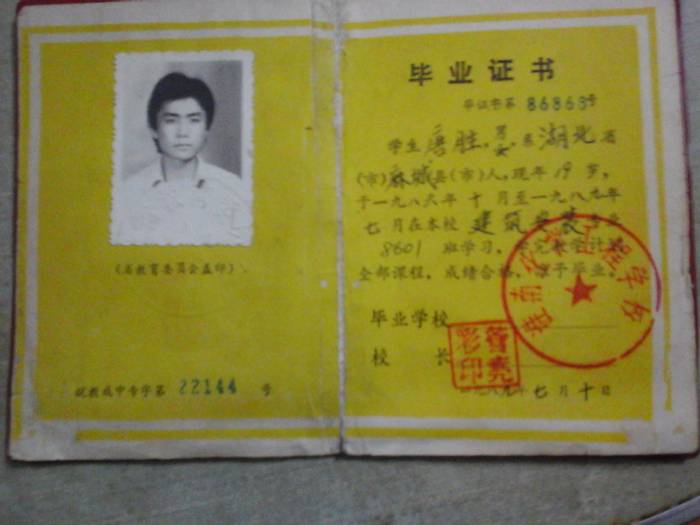 （省教育委员会盖印）
皖教成中专字第 22144 号
毕业证书
毕证书第 86863号
学生唐胜，男女，系湖北省
（市）麻城县（市）人，现年19岁，
于一九八六年十月至一九八九年
七月在本校建筑安装专业
8601班学习，学完教学计划
全部课程，成绩合格，准予毕业。
毕业学校
校长
彩印
一九八九年七月十日